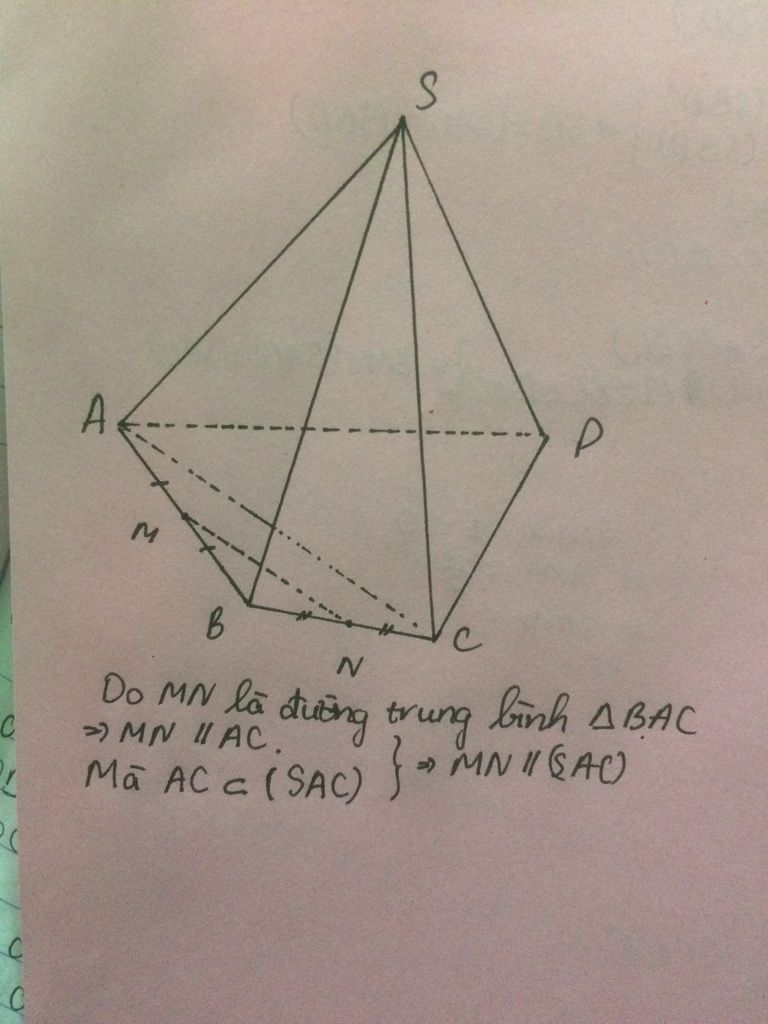 S
A
D
M
B
C
N
Do MN là đường trung bình △BAC
⇒ MN // AC.
Mà AC ⊂ (SAC) } ⇒ MN // (SAC)